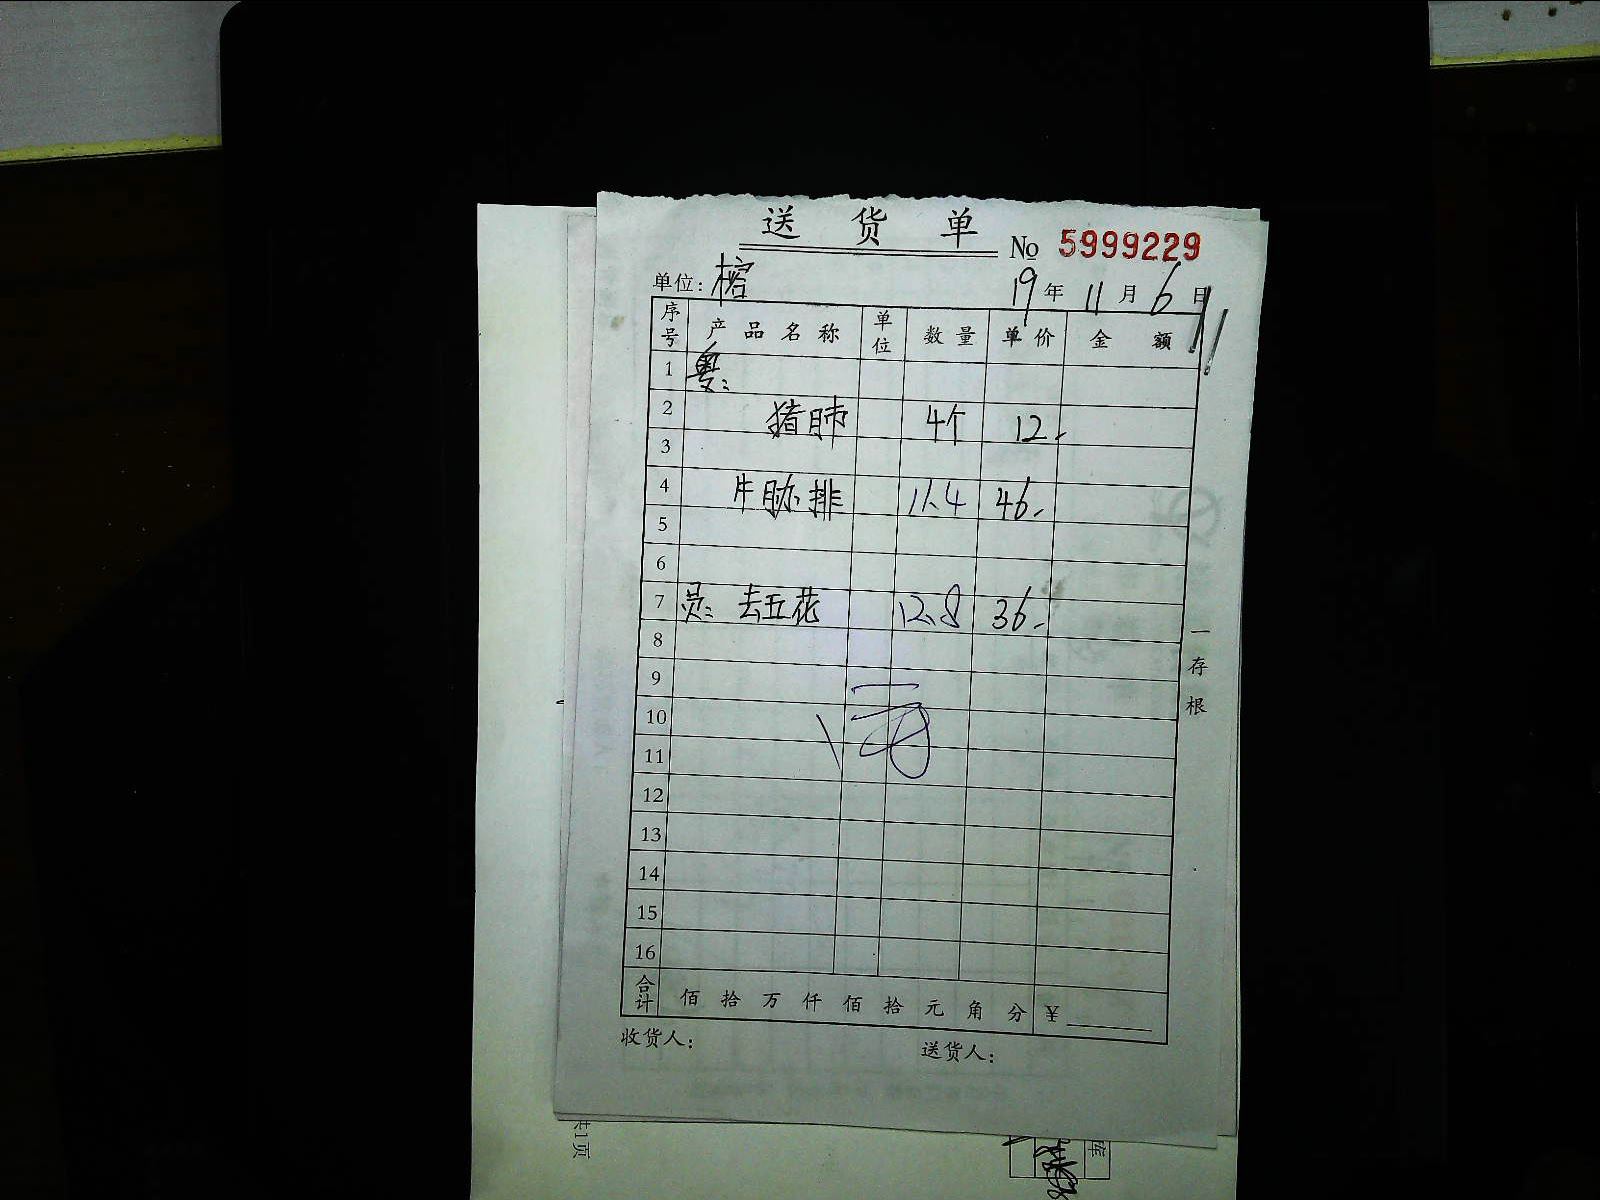 送货单
No 5999229
单位: 榕 19年11月6日
序号 产品名称 单位 数量 单价 金额
1 粤:
2 猪肺 4个 12.
3
4 牛肋排 11.4 46.
5
6
7 员: 去五花 12.8 36.
8
9
10
11
12
13
14
15
16
合计 佰拾万仟佰拾元角分 ¥
收货人: 送货人:
一存根
共1页
库